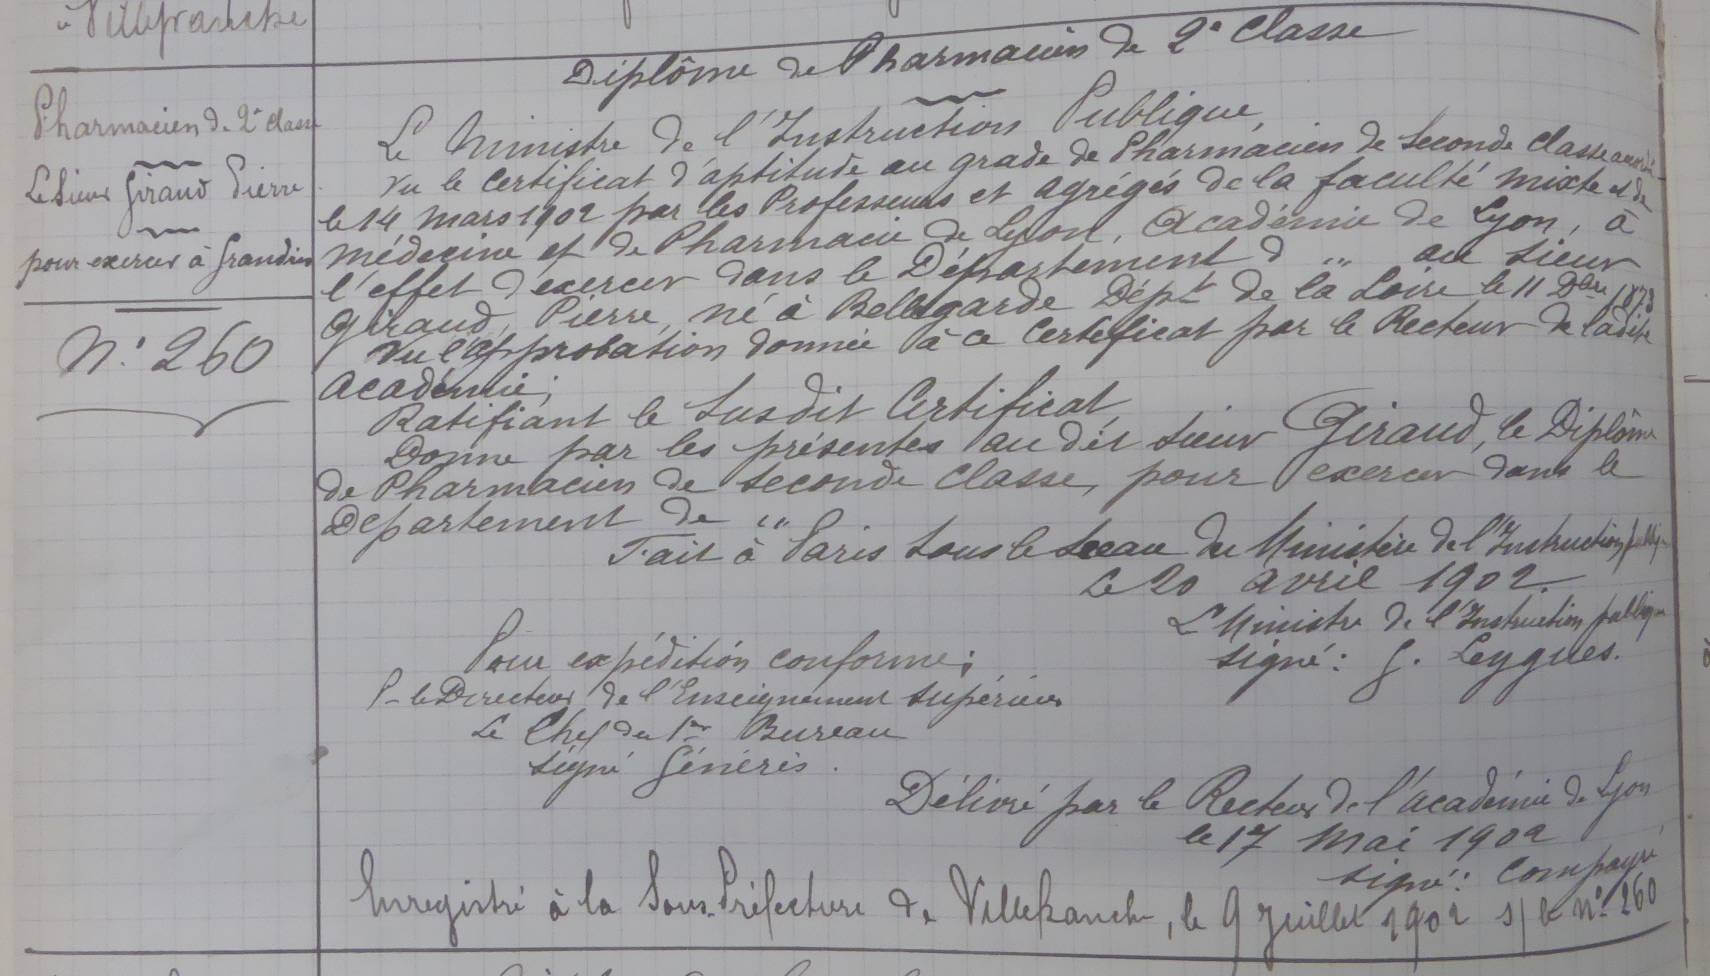 à Villefranche
Pharmacien de 2e classe
Le Sieur Giraud Pierre
pour exercer à Grandris
N° 260
Diplôme de Pharmacien de 2e Classe
Le Ministre de l'Instruction Publique,
Vu le Certificat d'aptitude au grade de Pharmacien de Seconde Classe accordé
le 14 mars 1902 par les Professeurs et agrégés de la faculté mixte et de
médecine et de Pharmacie de Lyon, Académie de Lyon, à
l'effet d'exercer dans le Département d " au Sieur
Giraud, Pierre, né à Bellegarde Dépt de la Loire le 11 Dbre 1878
Vu l'approbation donnée à ce Certificat par le Recteur de ladite
académie;
Ratifiant le Susdit Certificat,
Donne par les présentes au dit Sieur Giraud, le Diplôme
de Pharmacien de Seconde Classe, pour exercer dans le
Département de "
Fait à Paris Sous le Sceau du Ministère de l'Instruction publique
Le 20 avril 1902.
Le Ministre de l'Instruction publique
Signé: G. Leygues.
Pour expédition conforme;
P. le Directeur de l'Enseignement Supérieur
Le Chef du 1er Bureau
Signé Génerès.
Délivré par le Recteur de l'académie de Lyon
le 17 Mai 1902
Signé: Compayré
Enregistré à la Sous-Préfecture de Villefranche, le 9 Juillet 1902 s/ le N° 260